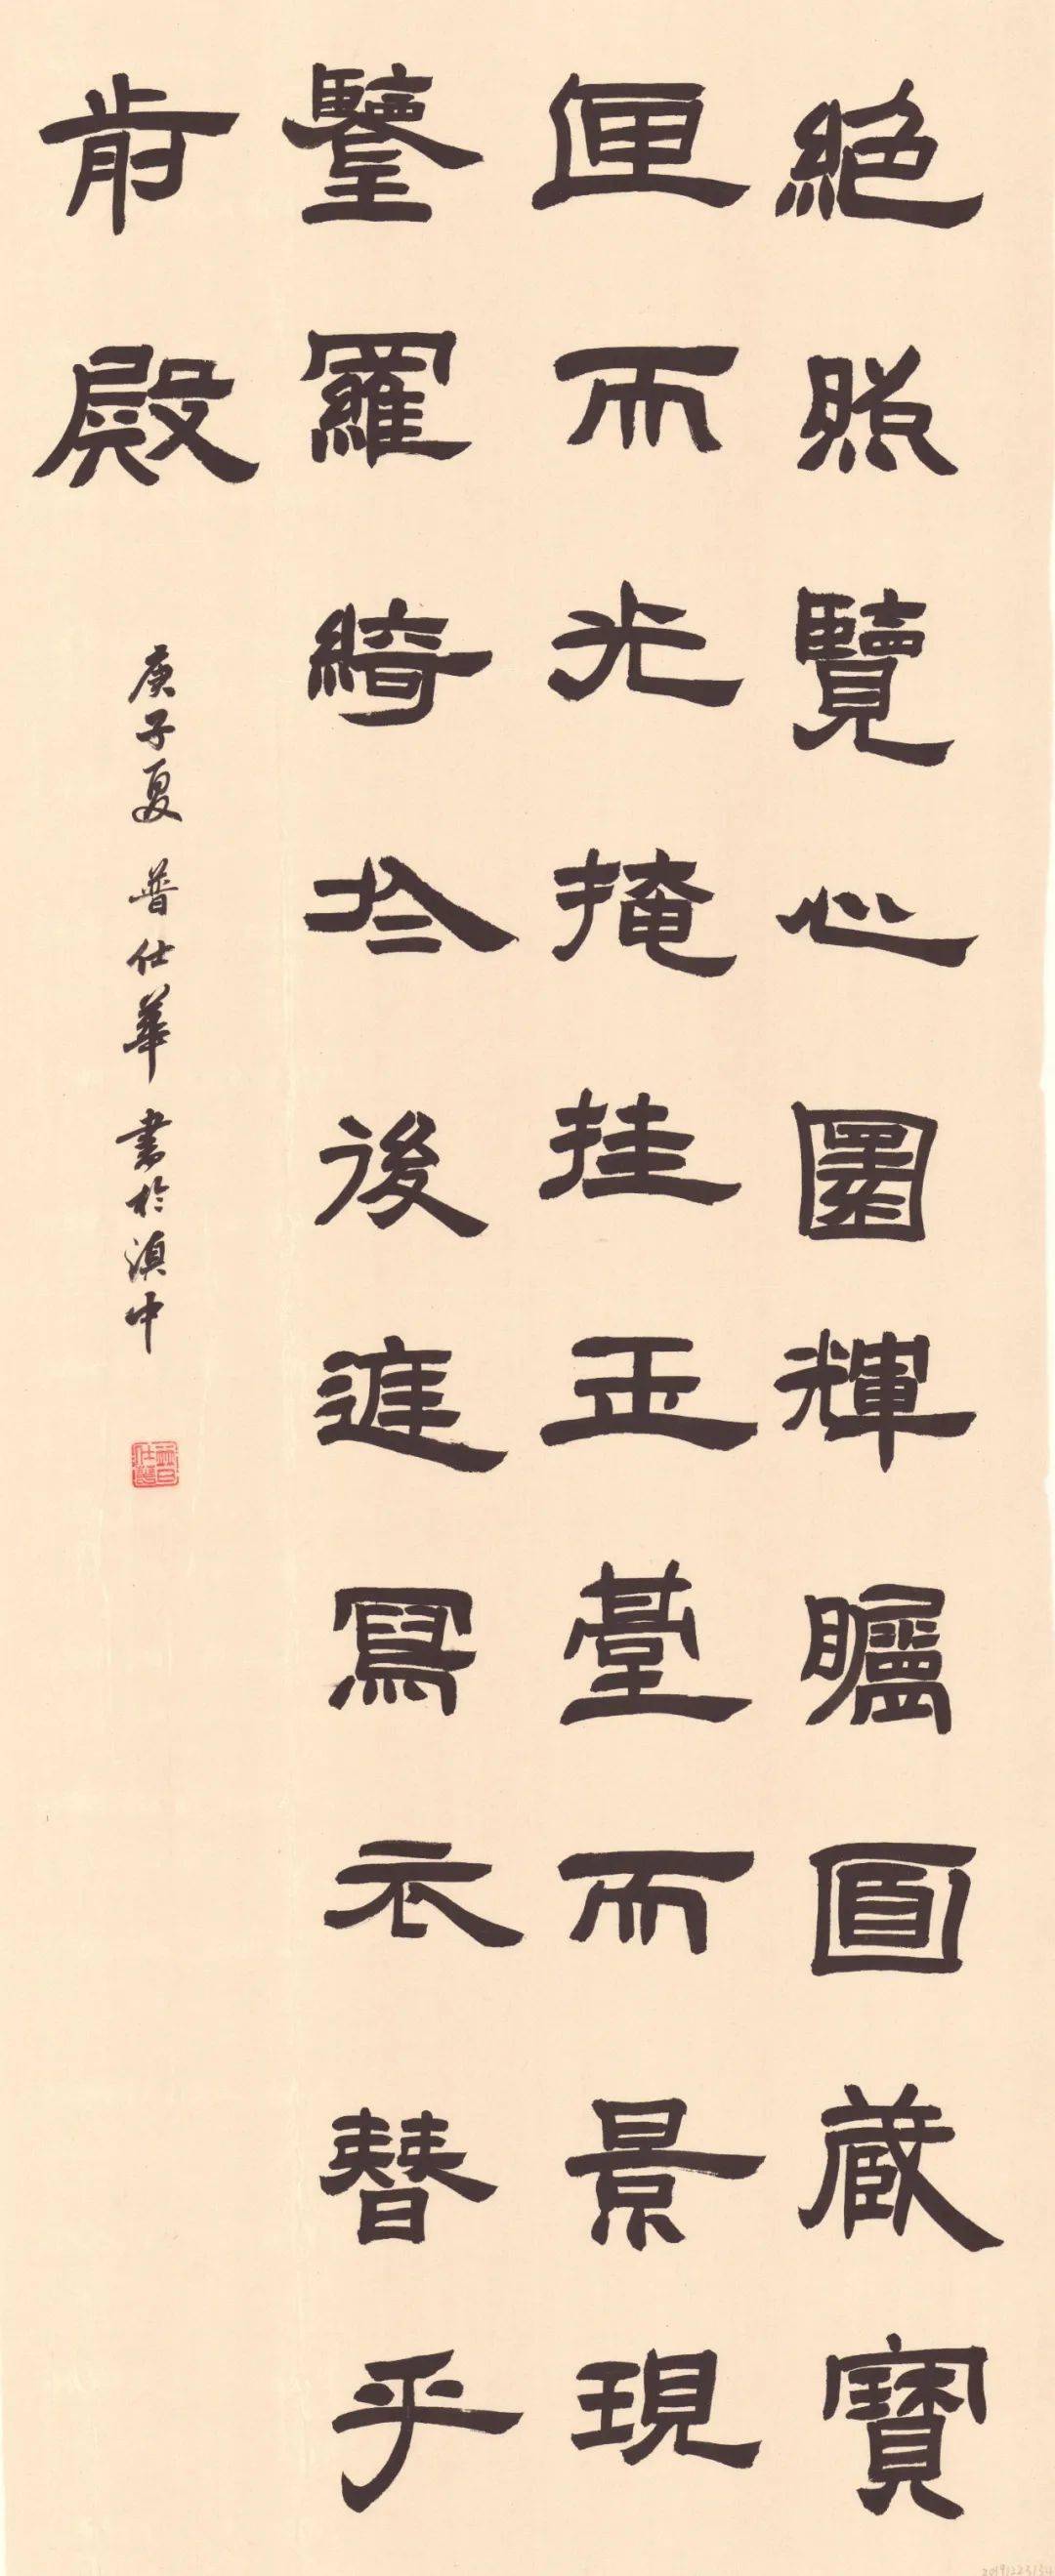 絕照覽心圜輝矚面藏寶
匣而光掩挂玉臺而景現
鑒羅綺於後進寫衣簪乎
前殿
庚子夏 普仕華 書於滇中
普仕華印